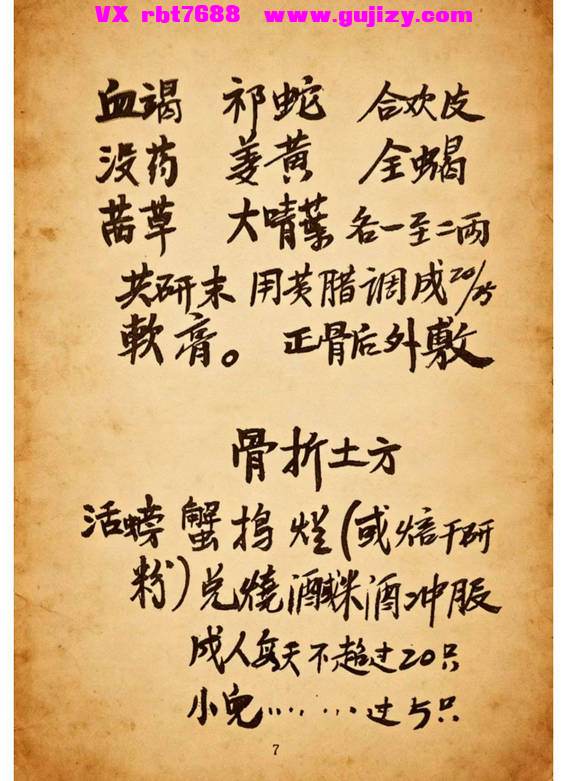 VX rbt7688 www.gujizy.com
血竭 祁蛇 合欢皮
没药 姜黄 全蝎
茜草 大晴葉 各一至二両
共研末 用英腊调成20/25
軟膏。 正骨后外敷
骨折土方
活螃蟹捣烂(或焙干研
粉)兑燒酒或米酒冲服
成人每天不超过20只
小儿……过5只
7